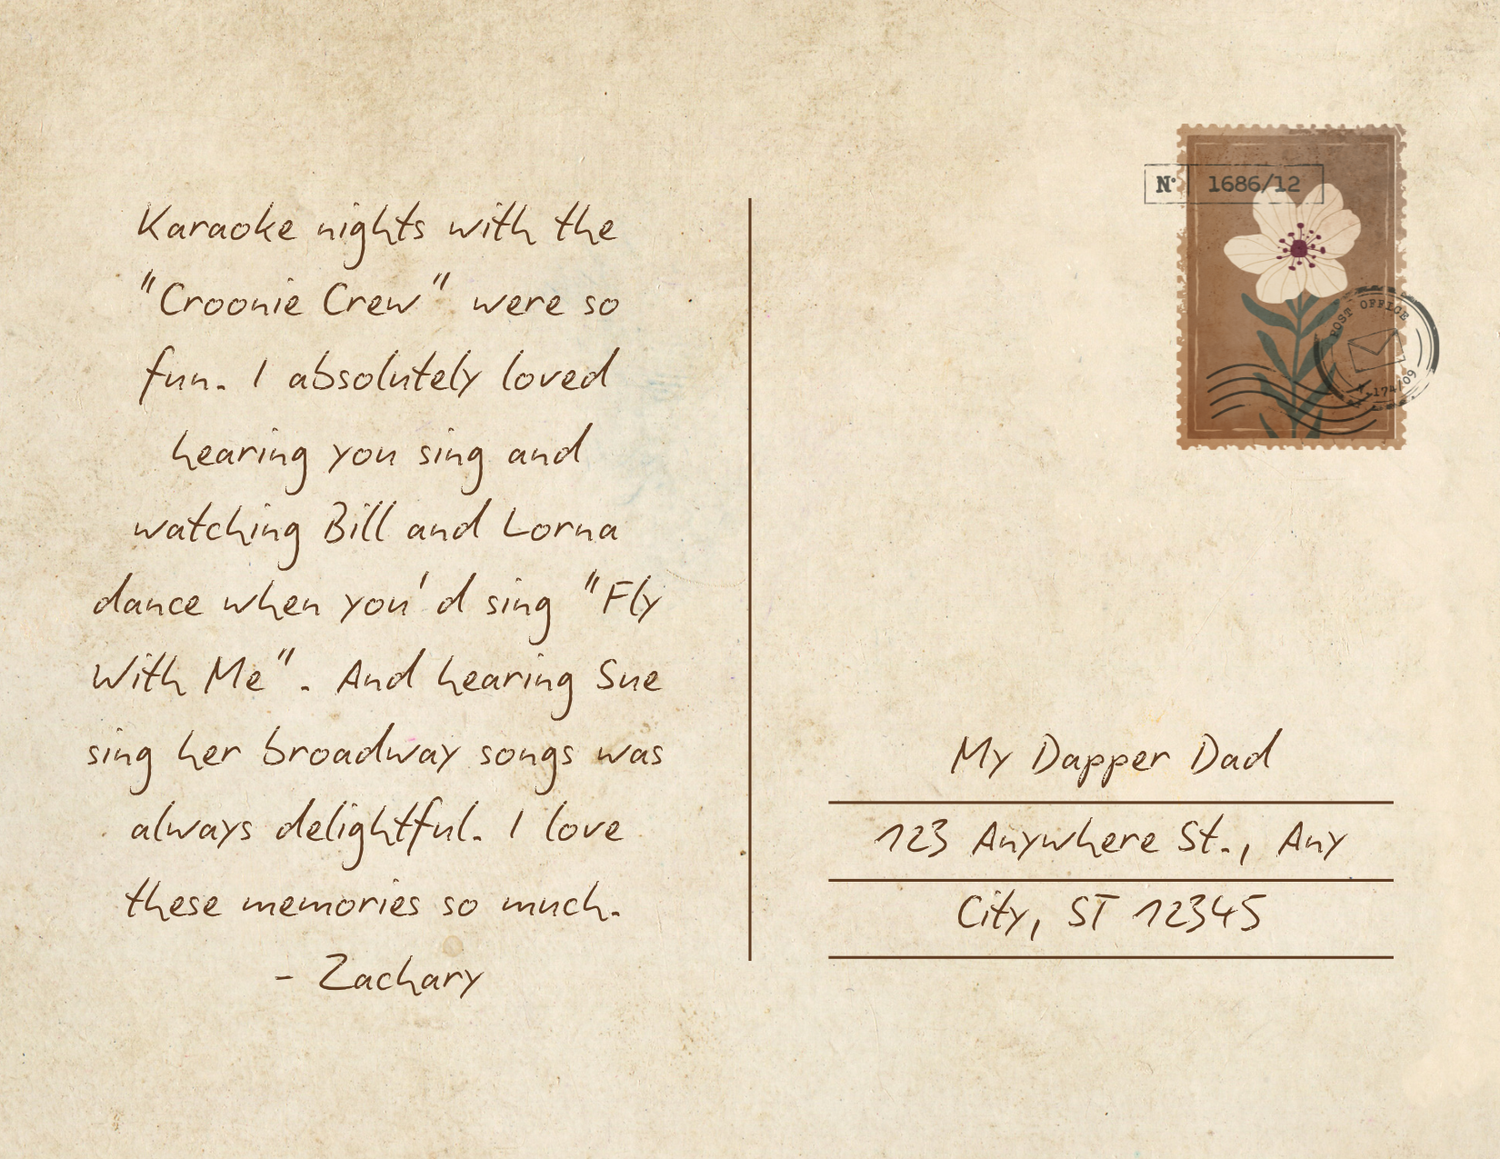 Karaoke nights with the
"Croonie Crew" were so
fun. I absolutely loved
hearing you sing and
watching Bill and Lorna
dance when you'd sing "Fly
With Me". And hearing Sue
sing her broadway songs was
always delightful. I love
these memories so much.
- Zachary
N° 1686/12
POST OFFICE
My Dapper Dad
123 Anywhere St., Any
City, ST 12345